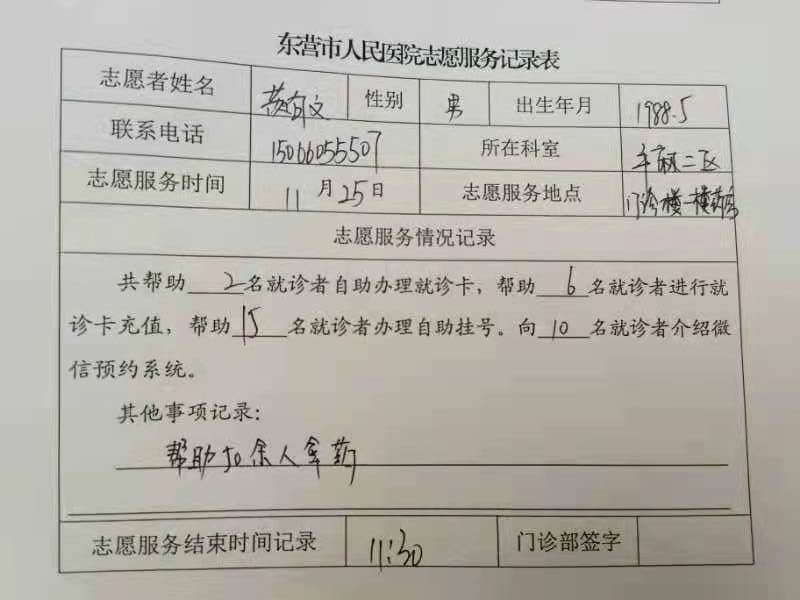 东营市人民医院志愿服务记录表
志愿者姓名 文 性别 男 出生年月 1988.5
联系电话 15066055507 所在科室 二区
志愿服务时间 11月25日 志愿服务地点 门诊楼一楼药房
志愿服务情况记录
共帮助2名就诊者自助办理就诊卡，帮助6名就诊者进行就
诊卡充值，帮助15名就诊者办理自助挂号。向10名就诊者介绍微
信预约系统。
其他事项记录：
帮助50余人拿药
志愿服务结束时间记录 11:30 门诊部签字